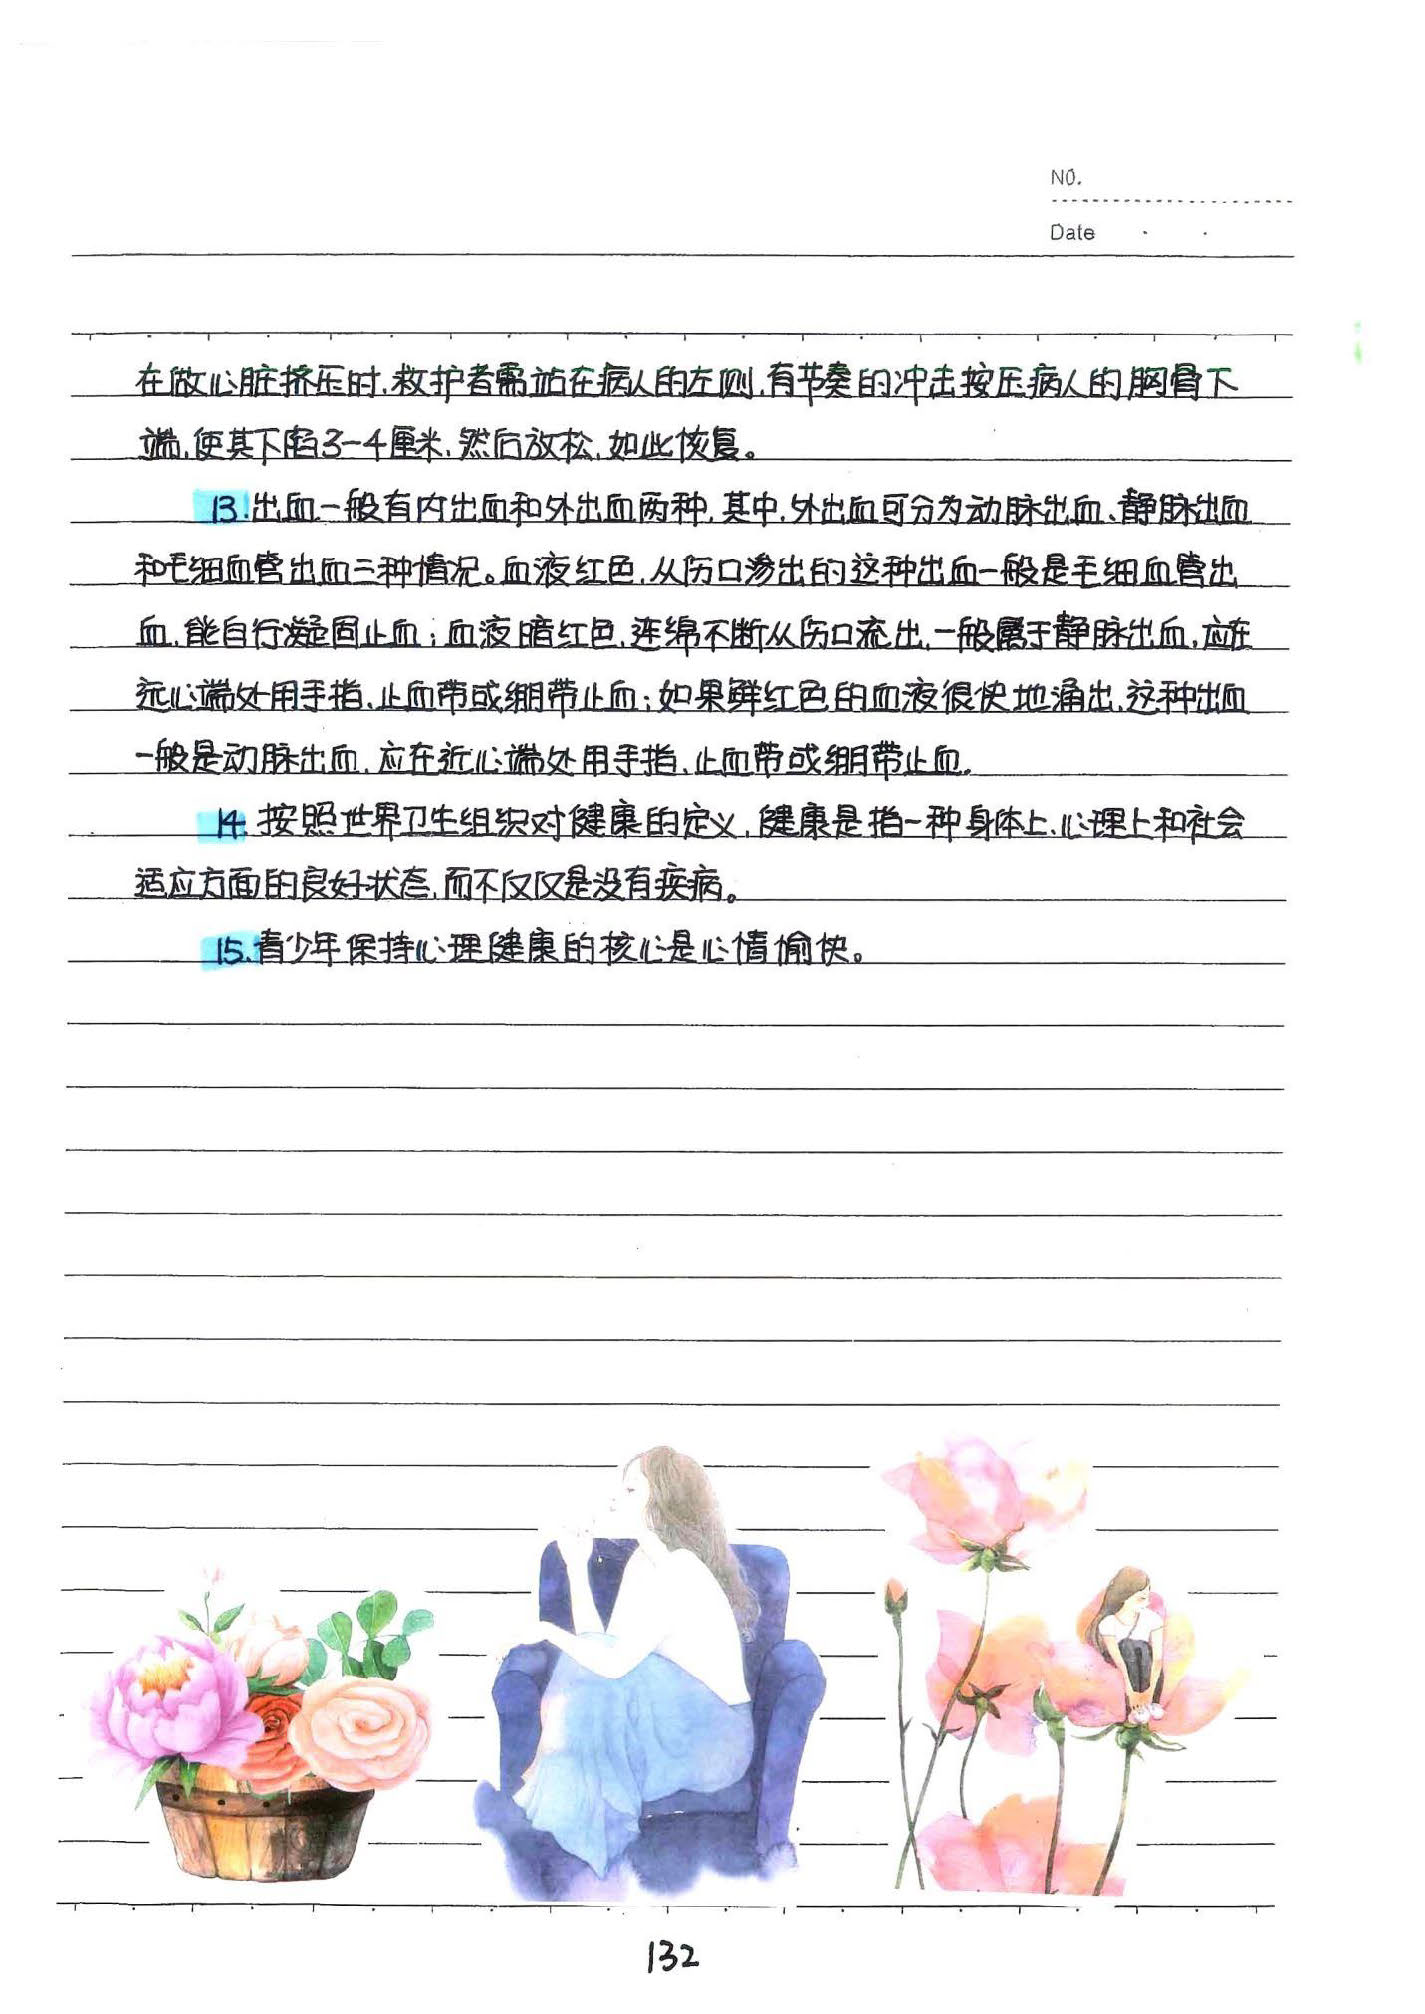 NO.
Date
在做心脏挤压时,救护者需站在病人的左则,有节奏的冲击按压病人的胸骨下
端,使其下陷3-4厘米,然后放松,如此恢复。
13.出血一般有内出血和外出血两种,其中,外出血可分为动脉出血、静脉出血
和毛细血管出血三种情况。血液红色,从伤口渗出的这种出血一般是毛细血管出
血,能自行凝固止血;血液暗红色,连绵不断从伤口流出,一般属于静脉出血,应在
远心端处用手指、止血带或绷带止血;如果鲜红色的血液很快地涌出,这种出血
一般是动脉出血,应在近心端处用手指、止血带或绷带止血。
14. 按照世界卫生组织对健康的定义,健康是指一种身体上、心理上和社会
适应方面的良好状态,而不仅仅是没有疾病。
15.青少年保持心理健康的核心是心情愉快。
132